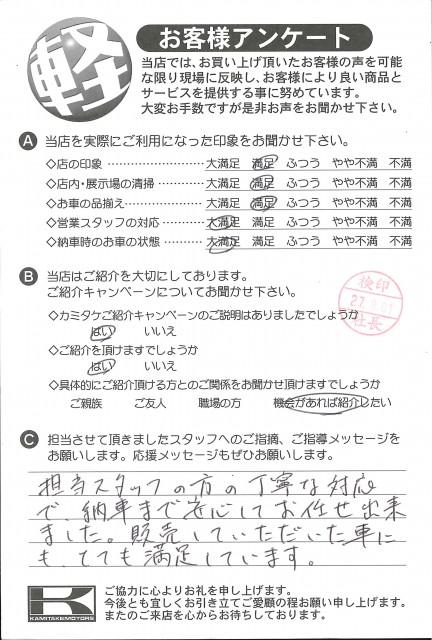 軽
お客様アンケート
当店では、お買い上げ頂いたお客様の声を可能
な限り現場に反映し、お客様により良い商品と
サービスを提供する事に努めています。
大変お手数ですが是非お声をお聞かせ下さい。
A 当店を実際にご利用になった印象をお聞かせ下さい。
◇店の印象 ………………… 大満足 満足 ふつう やや不満 不満
◇店内・展示場の清掃………… 大満足 満足 ふつう やや不満 不満
◇お車の品揃え……………… 大満足 満足 ふつう やや不満 不満
◇営業スタッフの対応………… 大満足 満足 ふつう やや不満 不満
◇納車時のお車の状態………… 大満足 満足 ふつう やや不満 不満
B 当店はご紹介を大切にしております。
ご紹介キャンペーンについてお聞かせ下さい。
検印
27
社長
◇カミタケご紹介キャンペーンのご説明はありましたでしょうか
はい いいえ
◇ご紹介を頂けますでしょうか
はい いいえ
◇具体的にご紹介頂ける方とのご関係をお聞かせ頂けますでしょうか
ご親族 ご友人 職場の方 機会があれば紹介したい
C 担当させて頂きましたスタッフへのご指摘、ご指導メッセージを
お願いします。応援メッセージもぜひお願いします。
担当スタッフの方の丁寧な対応
で、納車まで安心してお任せ出来
ました。販売していただいた車に
も、とても満足しています。
K
KAMITAKEMOTORS
ご協力に心よりお礼を申し上げます。
今後とも宜しくお引き立てご愛顧の程お願い申し上げます。
またのご来店を心からお待ちしております。